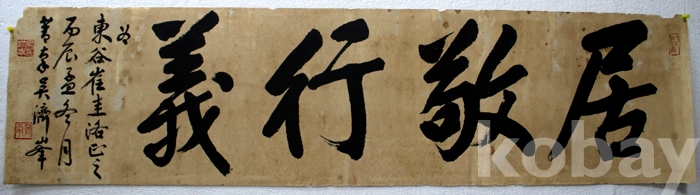 居敬行義
為
東谷崔圭洛正之
丙辰孟冬月
菁南吳濟峯
kobay